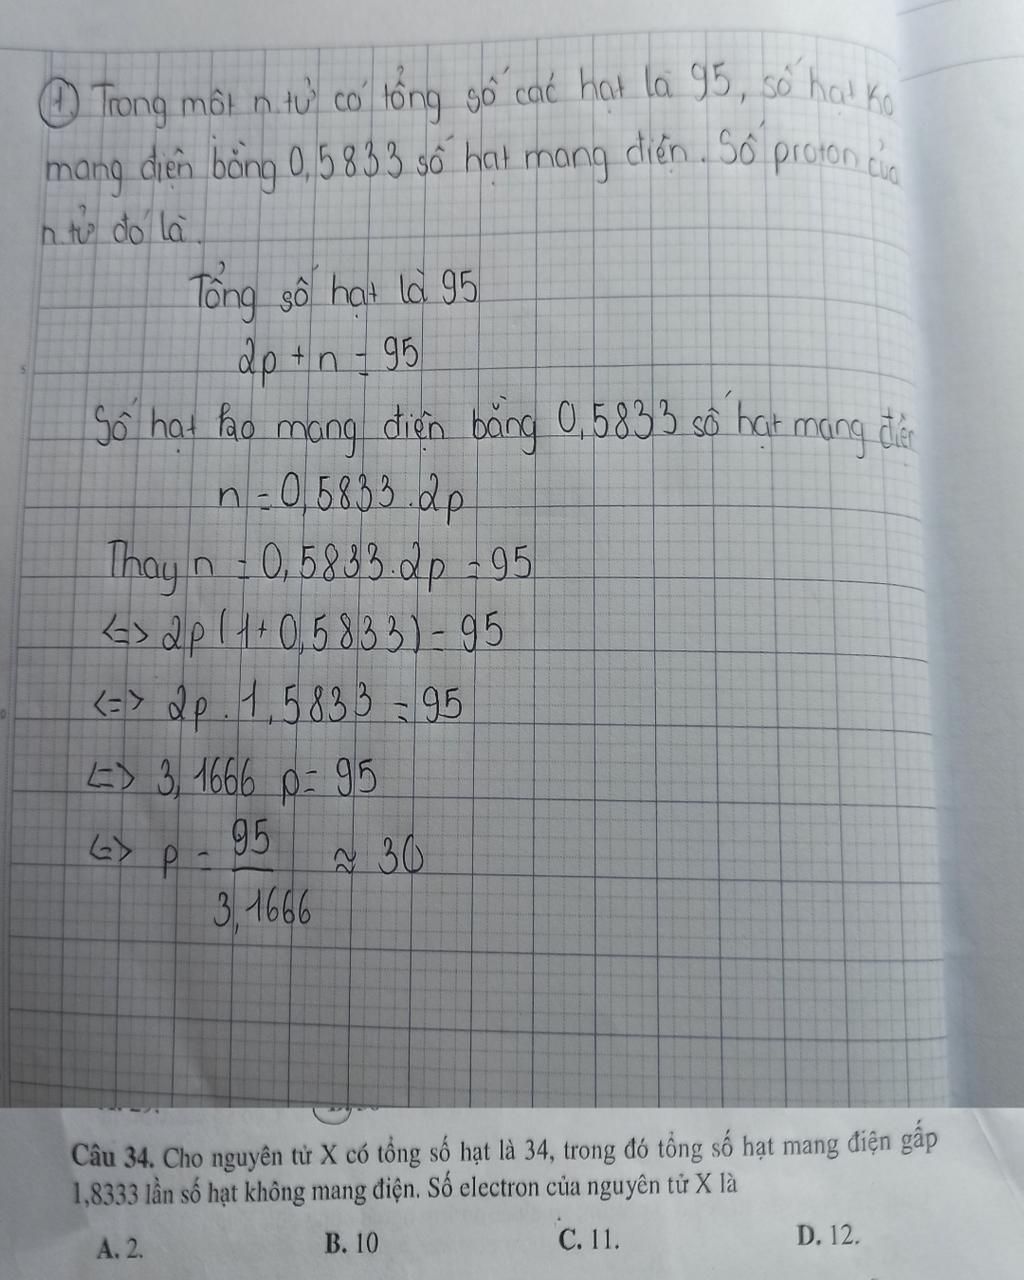 ① Trong một n.tử có tổng số các hạt là 95, số hạt ko
mang điện bằng 0,5833 số hạt mang điện. Số proton của
n.tử đó là.
Tổng số hạt là 95
2p + n = 95
Số hạt mang điện bằng 0,5833 số hạt mang điện
n = 0,5833.2p
Thay n = 0,5833.2p = 95
<=> 2p (1 + 0,5833) = 95
<=> 2p . 1,5833 = 95
<=> 3,1666 p = 95
<=> p = 95/3,1666 ≈ 30
Câu 34. Cho nguyên tử X có tổng số hạt là 34, trong đó tổng số hạt mang điện gấp
1,8333 lần số hạt không mang điện. Số electron của nguyên tử X là
A. 2. B. 10 C. 11. D. 12.